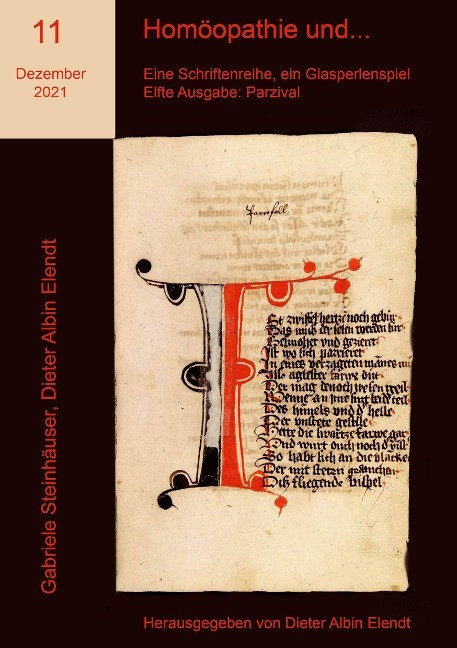 11
Dezember
2021
Homöopathie und...
Eine Schriftenreihe, ein Glasperlenspiel
Elfte Ausgabe: Parzival
Gabriele Steinhäuser, Dieter Albin Elendt
I
St zwifel hertze noch gebur
Das muß der selen werden sur
Gesmohet vnd gezieret
Ist wo sich parrieret
In eines verzageten manes
Der mag denoch wesen geil
Wenne an ime sint beide teil
Des himels vnd d' helle
Der vnstete geselle
Hette die swartze farwe gar
Und wurt ouch noch d'
So habt sich an die blancke
Der mit steten
Diß fliegende bilspel
Herausgegeben von Dieter Albin Elendt